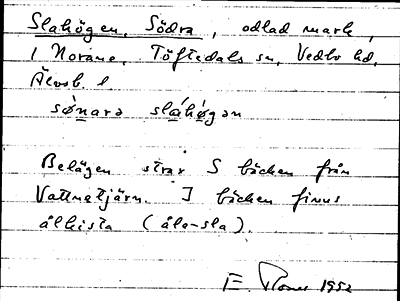 Slahögen, Södra, odlad mark,
i Norane, Töftedals sn, Vedbo hd,
Älvsb. l
sø̀nara sláhøgan
Belägen strax S bäcken från
Vattnetjärn. I bäcken finns
ålkista (åle-sla).
E. 1952